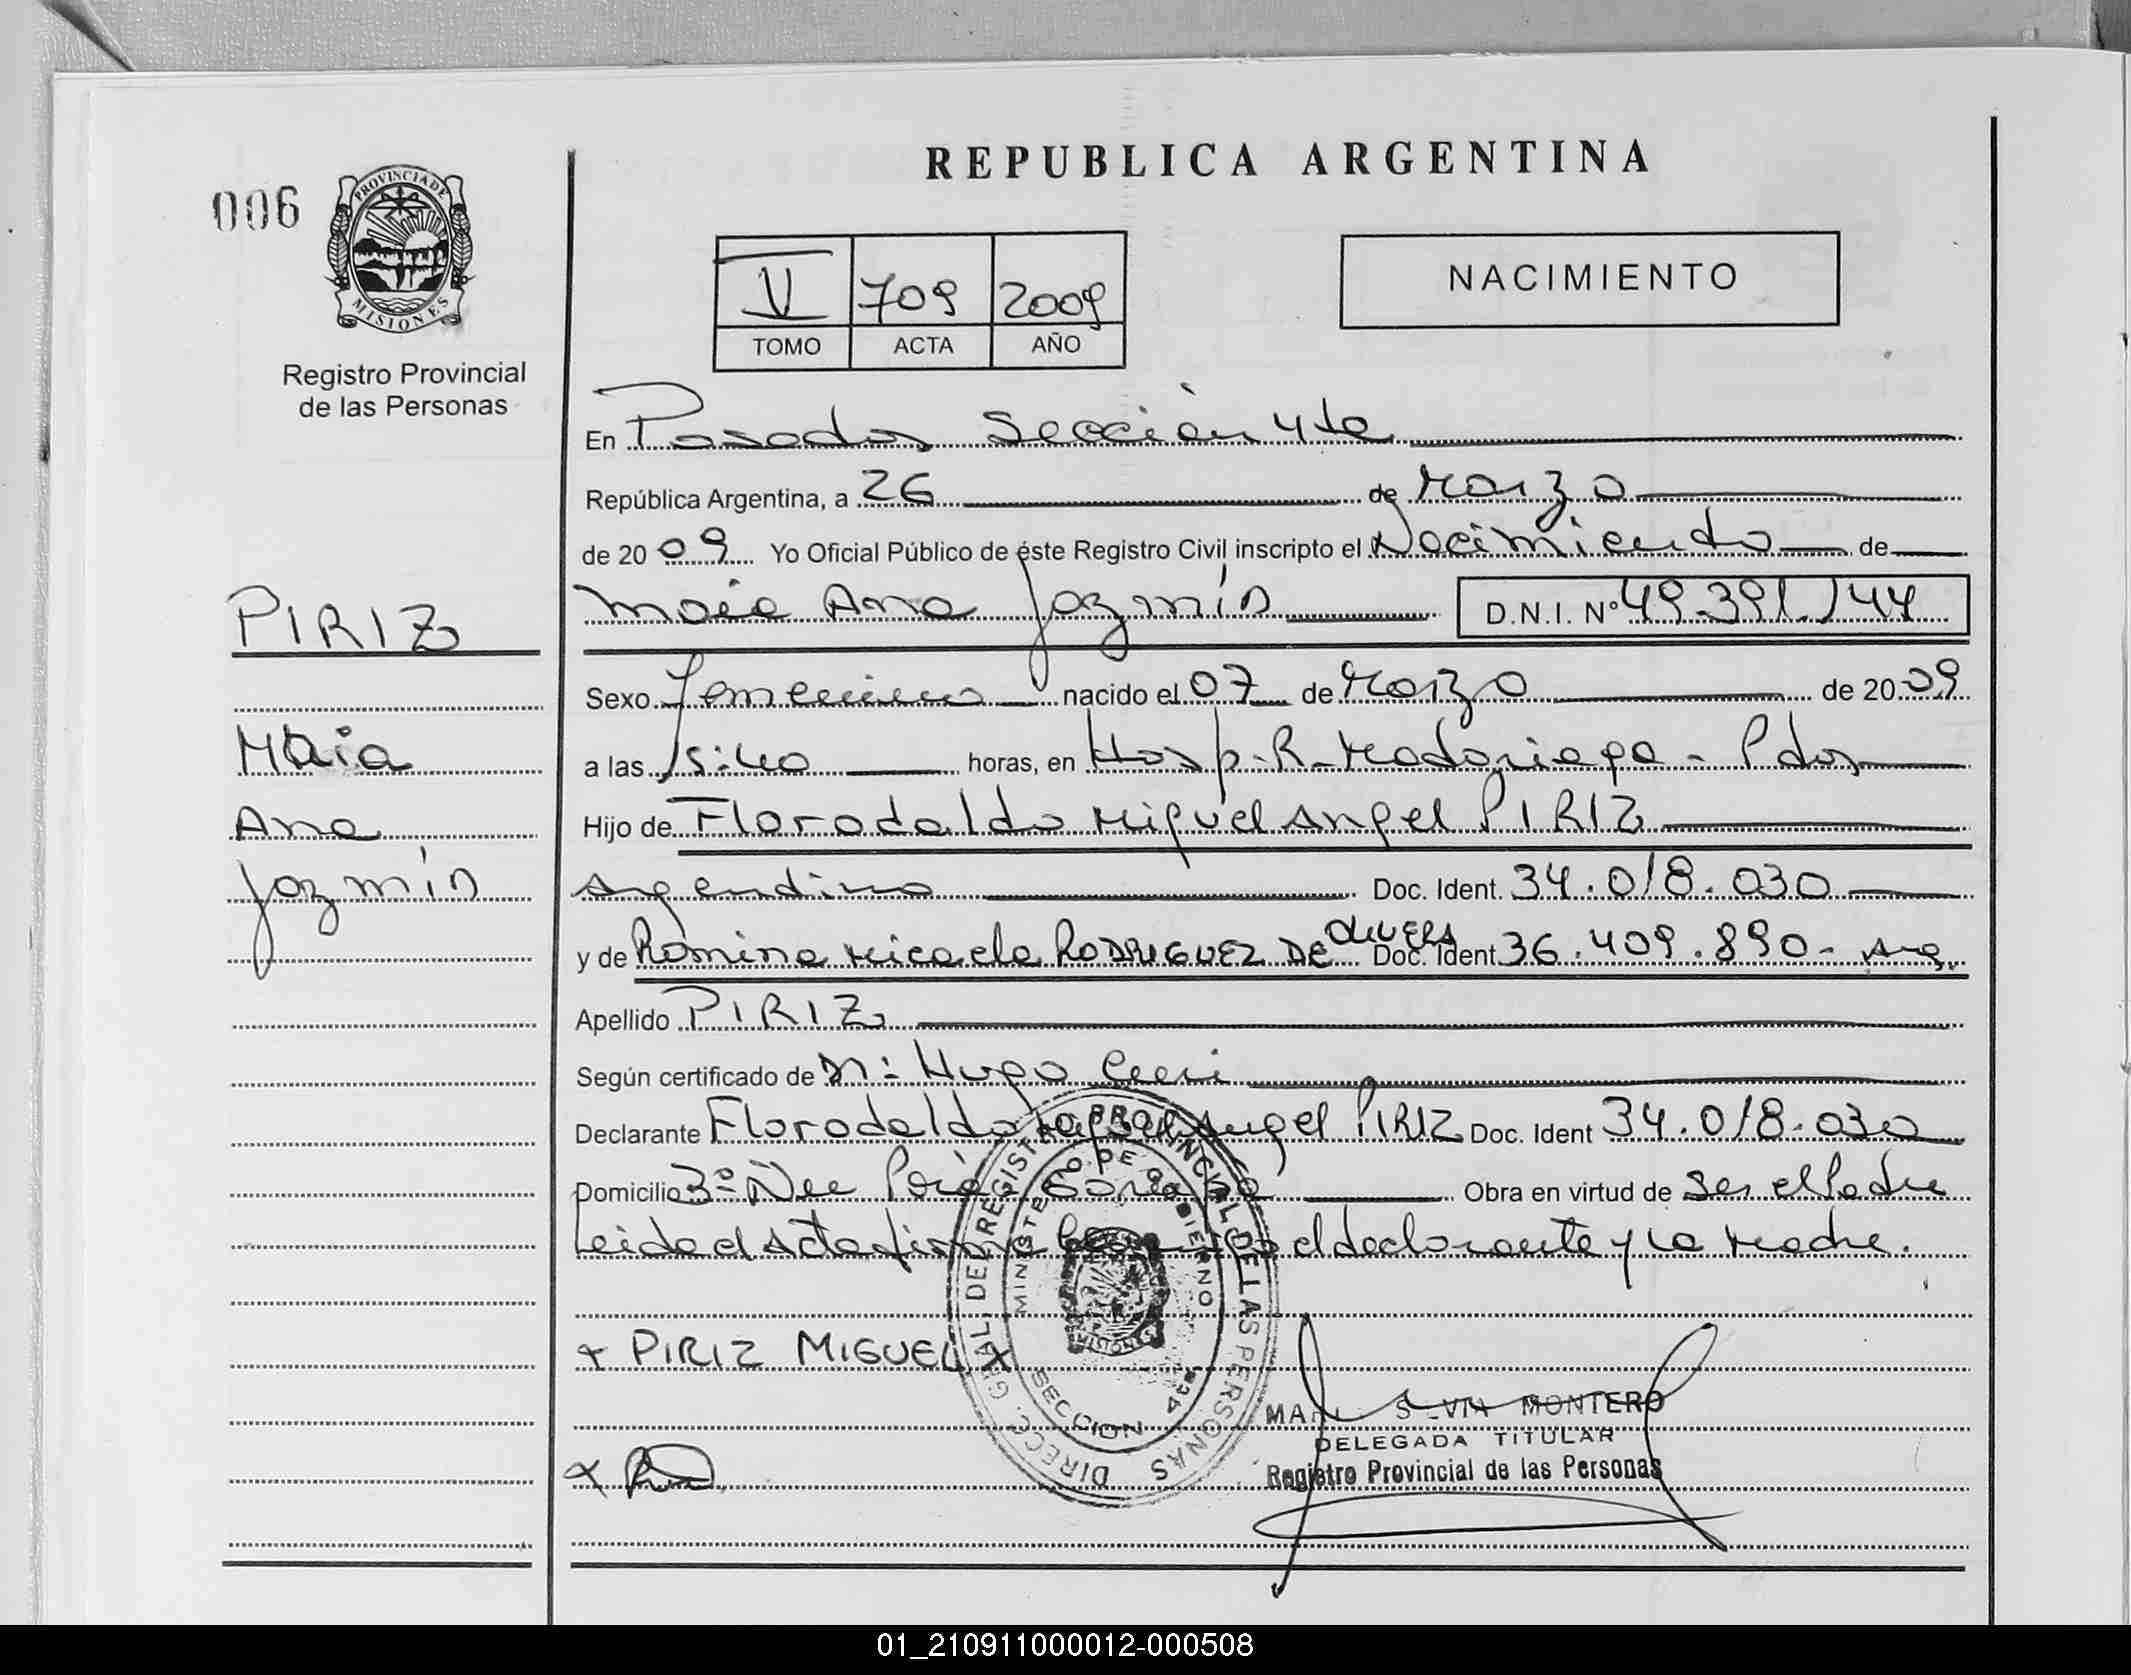 006
PROVINCIA DE
MISIONES
Registro Provincial
de las Personas
REPUBLICA ARGENTINA
V 709 2009
TOMO ACTA AÑO
NACIMIENTO
En Posadas Sección 4ta
República Argentina, a 26 de Marzo
de 2009 Yo Oficial Público de éste Registro Civil inscripto el Nacimiento de
Maia Ana Jazmín D.N.I. Nº 49.391.144
Sexo Femenino nacido el 07 de Marzo de 2009
a las 15:40 horas, en Hosp. R. Madariaga - Pdas
Hijo de Florodaldo Miguel Angel PIRIZ
Argentino Doc. Ident. 34.018.030
y de Romina Micaela RODRIGUEZ DE OLIVERA Doc. Ident. 36.409.890 - Arg.
Apellido PIRIZ
Según certificado de Hugo
Declarante Florodaldo Miguel Angel PIRIZ Doc. Ident 34.018.030
Domicilio Obra en virtud de Ser el Padre
Leida el Acta firma el declarante y la Madre.
x PIRIZ MIGUEL x
DIRECC. GRAL. DEL REGISTRO PROVINCIAL DE LAS PERSONAS
MINISTERIO DE GOBIERNO
MISIONES
SECCION 4ta
SILVIA MONTERO
DELEGADA TITULAR
Registro Provincial de las Personas
PIRIZ
Maia
Ana
Jazmín
01_210911000012-000508